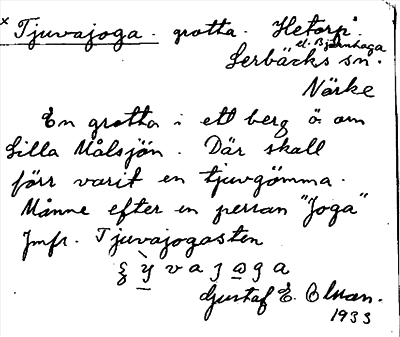 × Tjuvajoga. grotta. Hetorp.
el. Björnhaga
Lerbäcks sn.
Närke
En grotta i ett berg ö. om
Lilla Målsjön. Där skall
förr varit en tjuvgömma.
Månne efter en person "Joga"
Jmfr. Tjuvajogasten
Gustaf E. Olman.
1933